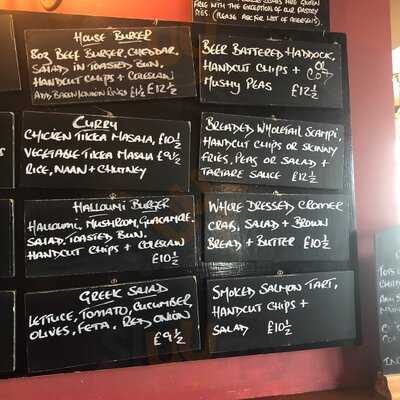 FREE WITH THE EXCEPTION OF OUR PASTRY
PIES (PLEASE ASK FOR LIST OF ALLERGENS)
HOUSE BURGER
8OZ BEEF BURGER, CHEDDAR,
SALAD IN TOASTED BUN,
HANDCUT CHIPS + COLESLAW
ADD BACON/ONION RINGS £1½ £12½
BEER BATTERED HADDOCK,
HANDCUT CHIPS +
MUSHY PEAS £12½
CURRY
CHICKEN TIKKA MASALA, £10½
VEGETABLE TIKKA MASALA £9½
RICE, NAAN + CHUTNEY
BREADED WHOLETAIL SCAMPI,
HANDCUT CHIPS OR SKINNY
FRIES, PEAS OR SALAD +
TARTARE SAUCE £12½
HALLOUMI BURGER
HALLOUMI, MUSHROOM, GUACAMOLE,
SALAD, TOASTED BUN.
HANDCUT CHIPS + COLESLAW
£10½
WHOLE DRESSED CROMER
CRAB, SALAD + BROWN
BREAD + BUTTER £10½
GREEK SALAD
LETTUCE, TOMATO, CUCUMBER,
OLIVES, FETA, RED ONION
£9½
SMOKED SALMON TART,
HANDCUT CHIPS +
SALAD £10½